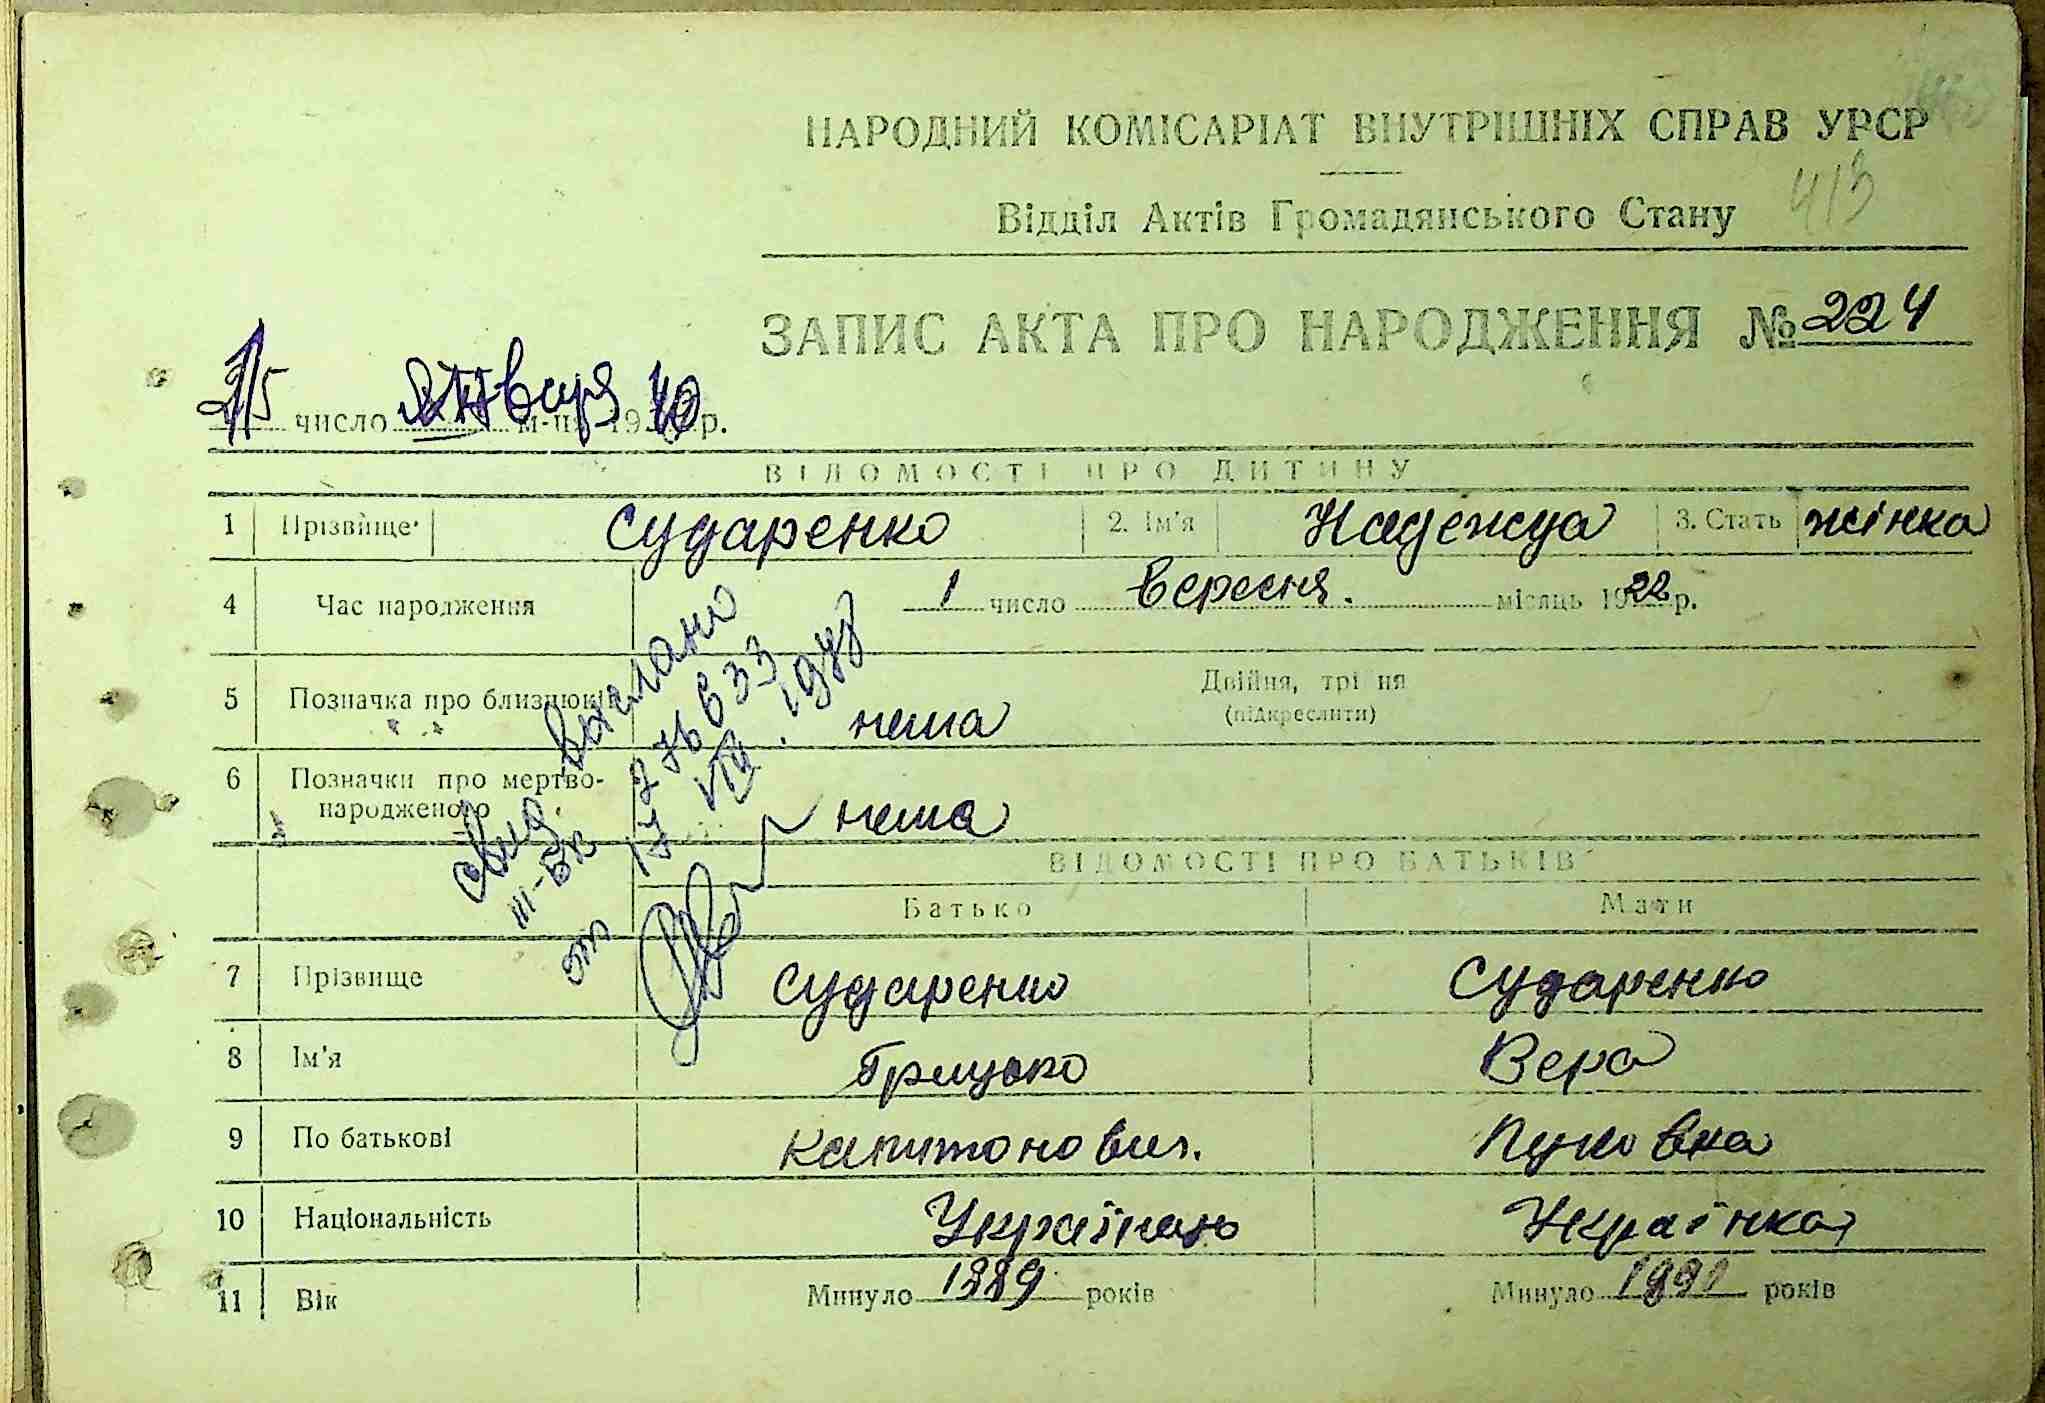 НАРОДНИЙ КОМІСАРІАТ ВНУТРІШНІХ СПРАВ УРСР
Відділ Актів Громадянського Стану 413
ЗАПИС АКТА ПРО НАРОДЖЕННЯ № 224
число Января м-ця 1940 р.
ВІДОМОСТІ ПРО ДИТИНУ
1 Прізвище Сударенко 2. Ім'я Надежда 3. Стать жінка
4 Час народження 1 число вересня. місяць 1922 р.
5 Позначка про близнюків нема Двійня, трійня
(підкреслити)
6 Позначки про мертво-
народженого нема
ВІДОМОСТІ ПРО БАТЬКІВ
Батько Мати
7 Прізвище Сударенко Сударенко
8 Ім'я Грицько Вера
9 По батькові Капитонович.
10 Національність Українець Українка
11 Вік Минуло 1889 років Минуло 1891 років
свид. выслано
III-БЯ 276633
от 17.VIII.